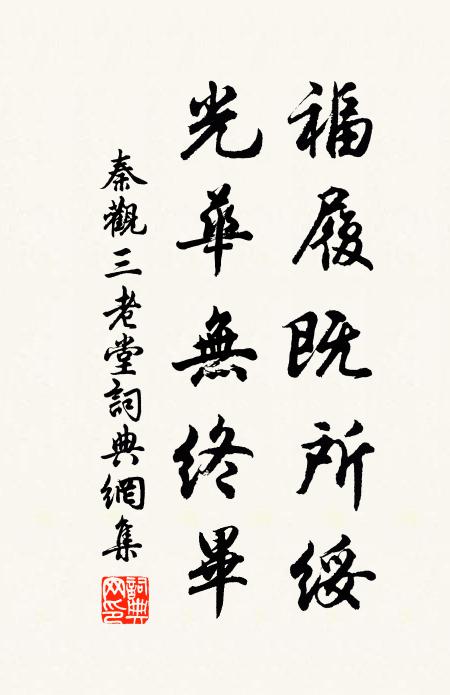 福履既所綏
光華無終畢
秦觀三老堂詞典網集
詞典网印